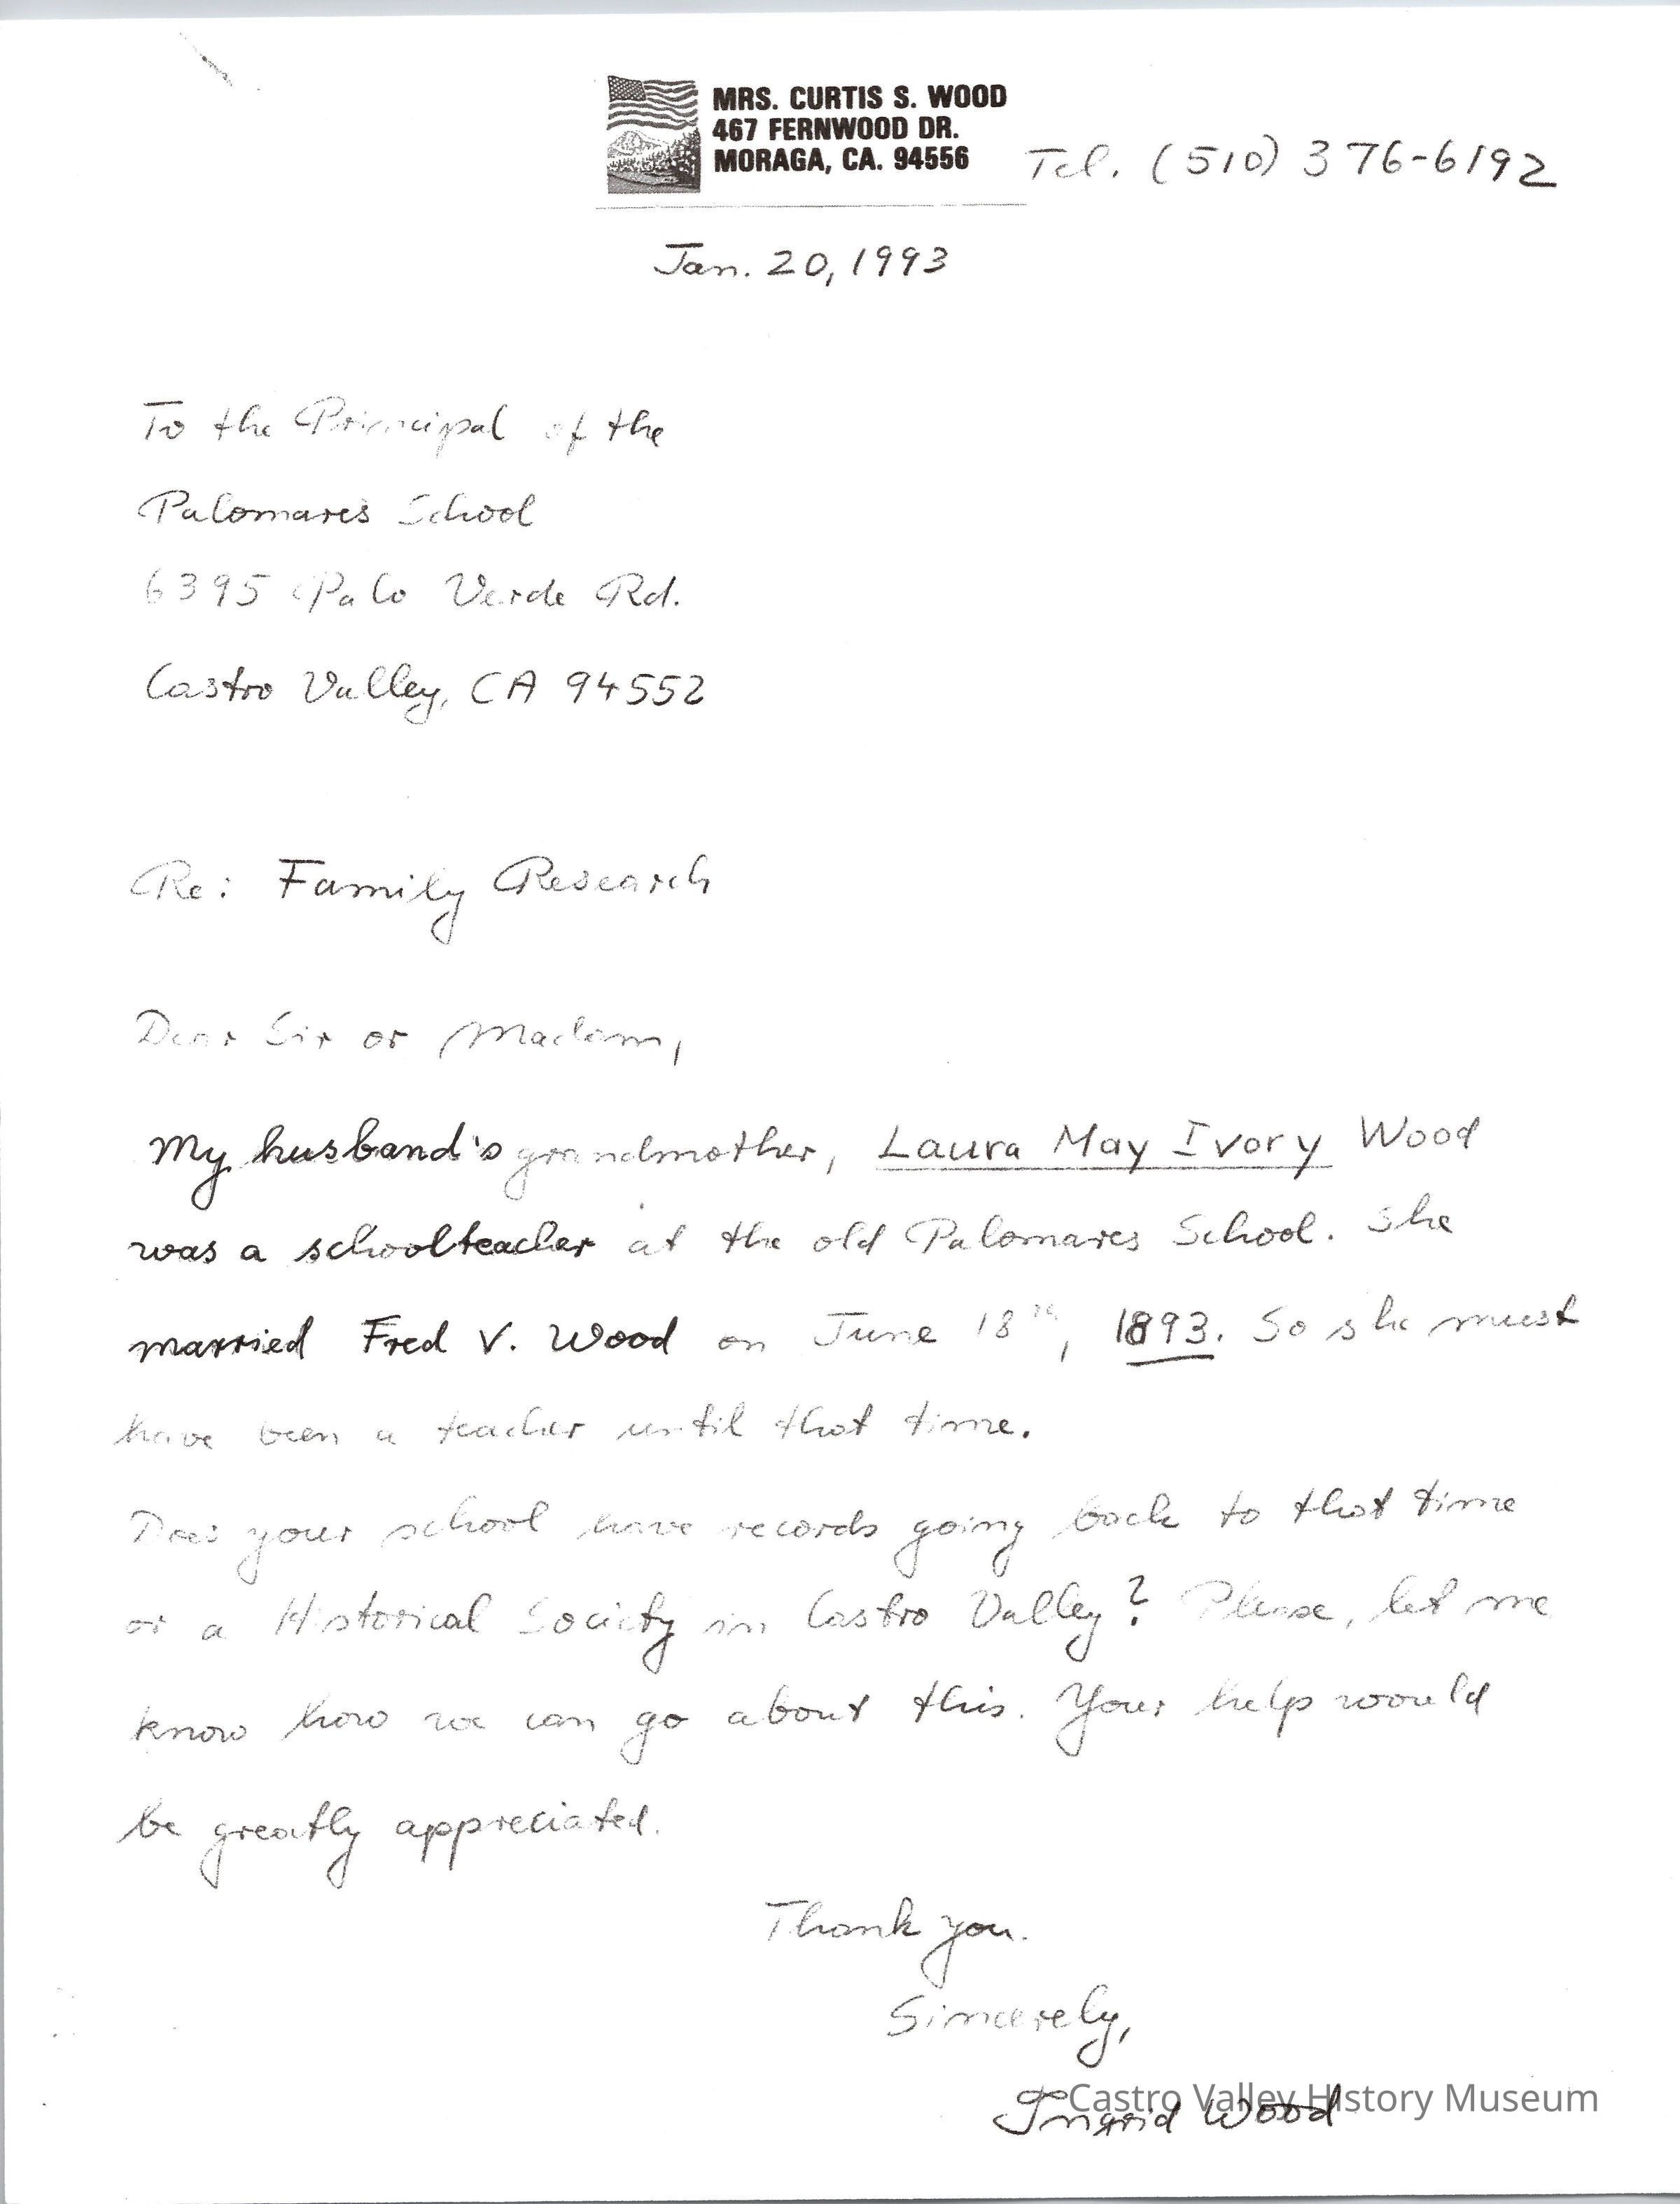 MRS. CURTIS S. WOOD
467 FERNWOOD DR.
MORAGA, CA. 94556 Tel. (510) 376-6192
Jan. 20, 1993
To the Principal of the
Palomares School
6395 Palo Verde Rd.
Castro Valley, CA 94552
Re: Family Research
Dear Sir or Madam,
My husband's grandmother, Laura May Ivory Wood
was a schoolteacher at the old Palomares School. She
married Fred V. Wood on June 18th, 1893. So she must
have been a teacher until that time.
Does your school have records going back to that time
or a Historical Society in Castro Valley? Please, let me
know how we can go about this. Your help would
be greatly appreciated.
Thank you.
Sincerely,
Ingrid Wood
Castro Valley History Museum